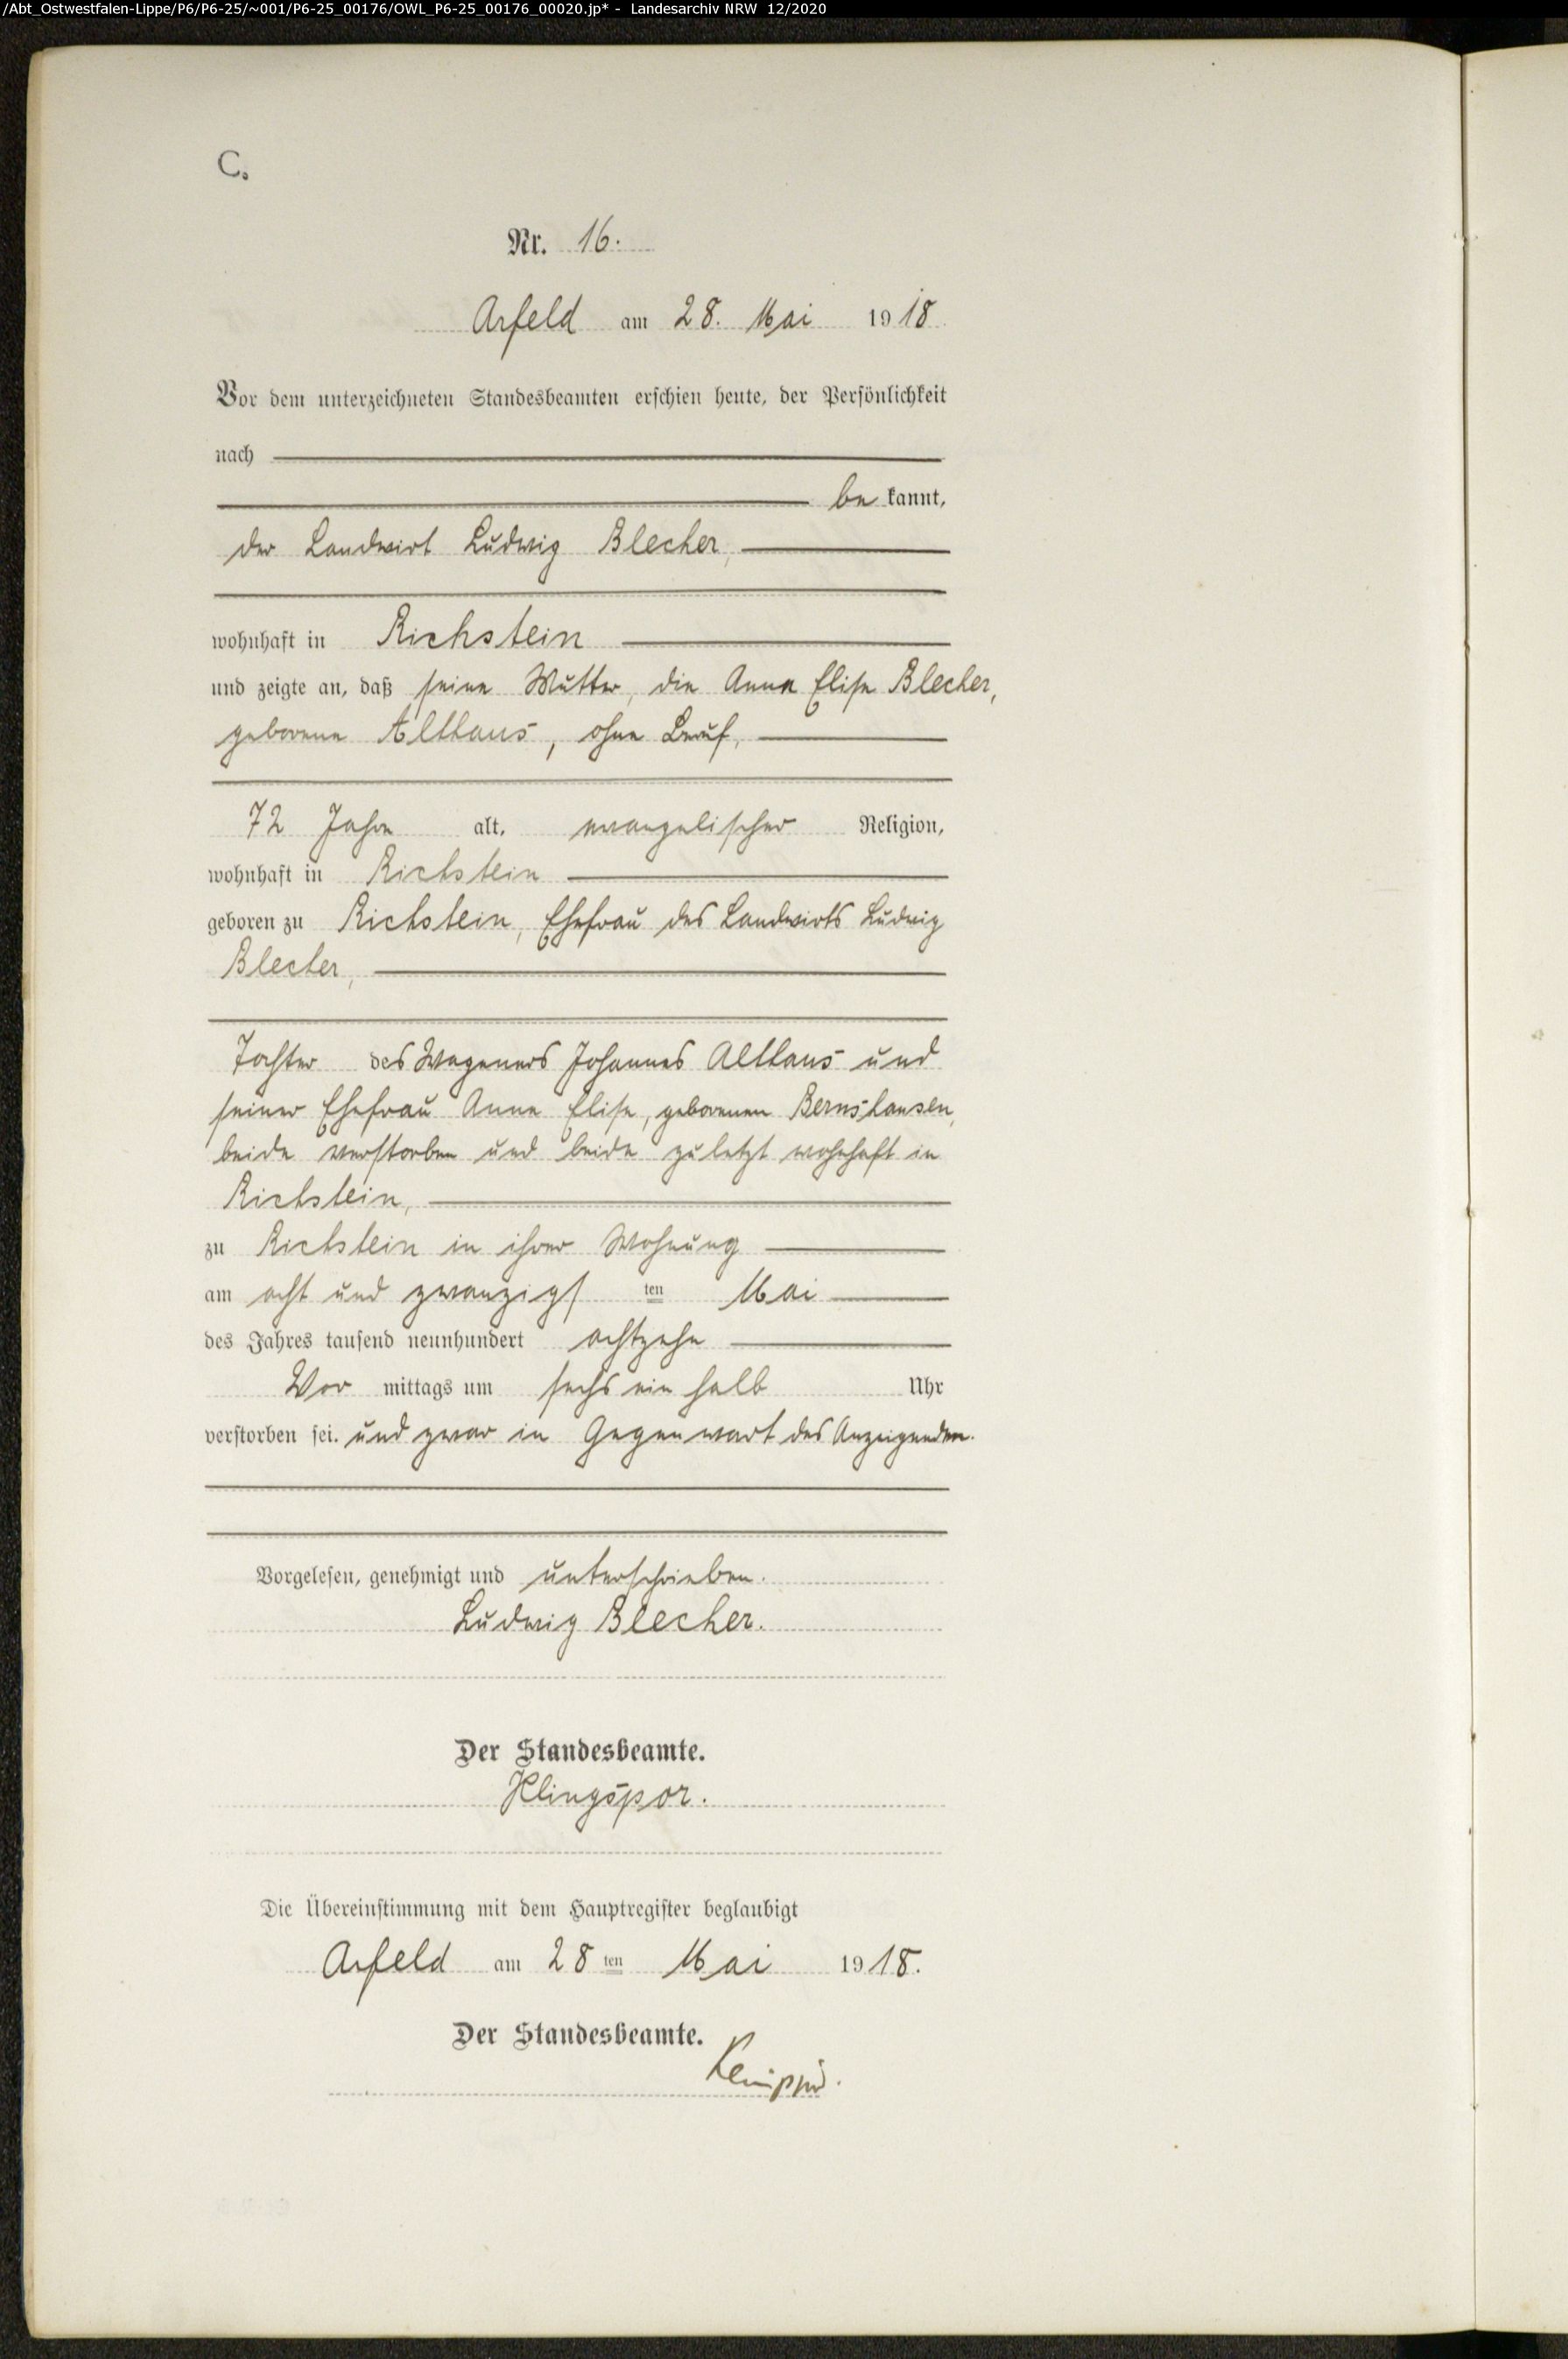 /Abt_Ostwestfalen-Lippe/P6/P6-25/~001/P6-25_00176/OWL_P6-25_00176_00020.jp* - Landesarchiv NRW 12/2020
C.
Nr. 16.
Arfeld am 28. Mai 1918
Vor dem unterzeichneten Standesbeamten erschien heute, der Persönlichkeit
nach
be kannt,
der Landwirt Ludwig Blecher,
wohnhaft in Richstein
und zeigte an, daß seine Mutter, die Anna Elise Blecher,
geborene Althaus, ohne Beruf,
72 Jahre alt, evangelischer Religion,
wohnhaft in Richstein
geboren zu Richstein, Ehefrau des Landwirts Ludwig
Blecher,
Tochter des Wageners Johannes Althaus und
seiner Ehefrau Anna Elise, geborenen Bernshausen,
beide verstorben und beide zuletzt wohnhaft in
Richstein,
zu Richstein in ihrer Wohnung
am acht und zwanzigs ten Mai
des Jahres tausend neunhundert achtzehn
Vor mittags um sechs ein halb Uhr
verstorben sei. und zwar in Gegenwart des Anzeigenden.
Vorgelesen, genehmigt und unterschrieben.
Ludwig Blecher.
Der Standesbeamte.
Klingspor.
Die Übereinstimmung mit dem Hauptregister beglaubigt
Arfeld am 28 ten Mai 1918.
Der Standesbeamte.